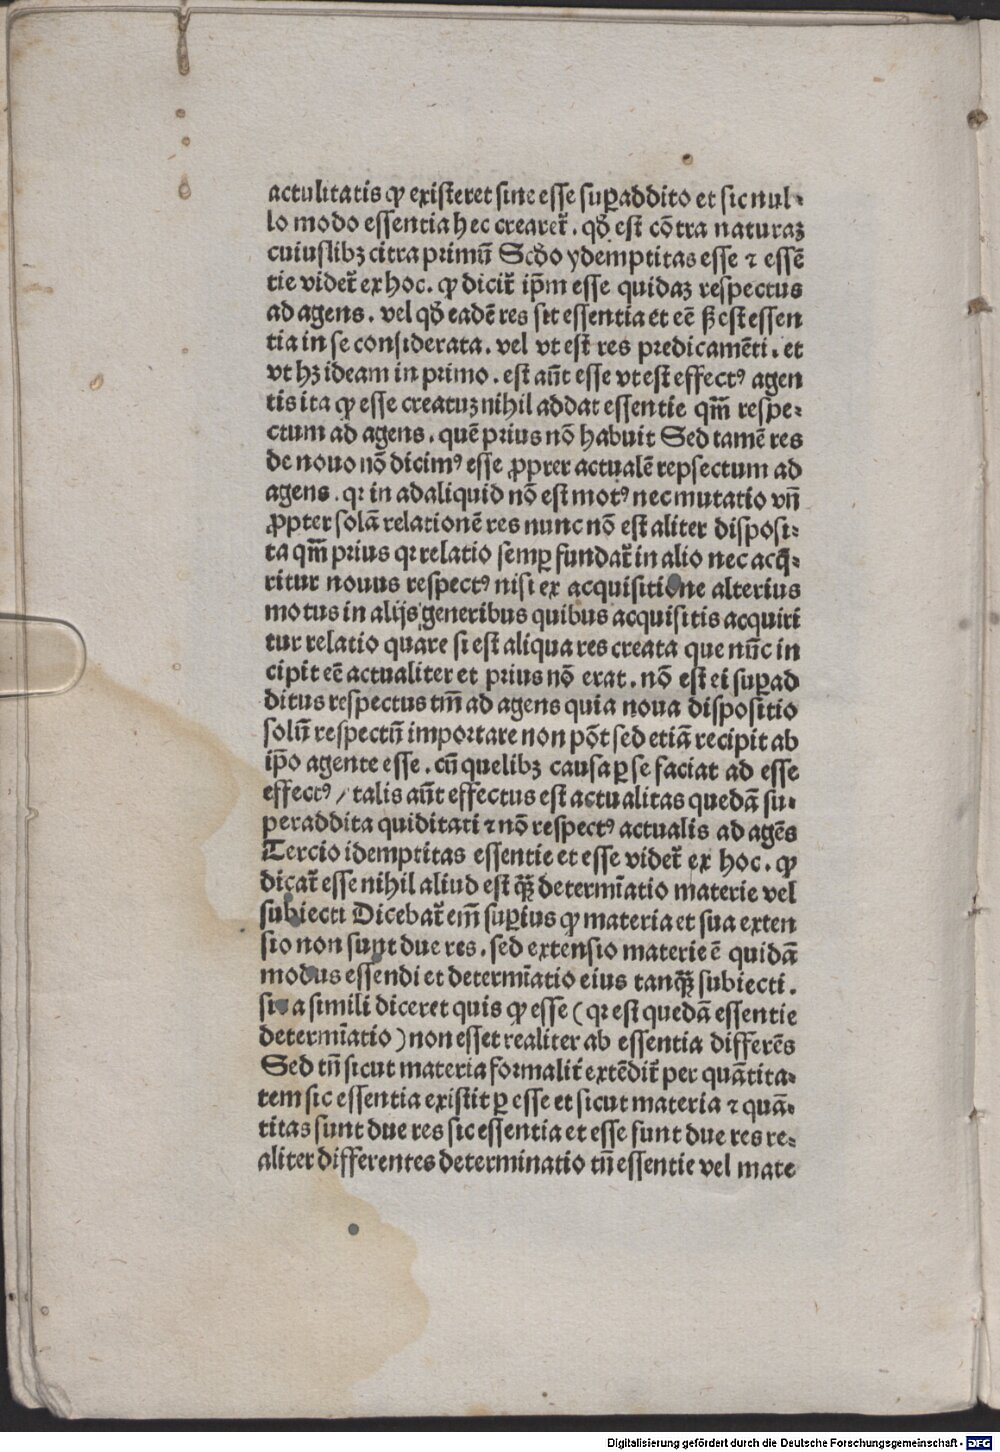 actulitatis ꝙ existeret sine esse suꝑaddito et sic nul⸗
lo modo essentia hec crearet̉. qð est cõtra naturaꝫ
cuiuslibꝫ citra primũ Scðo ydemptitas esse ⁊ essẽ
tie videt̉ ex hoc. ꝙ dicit̉ ip̃m esse quidaꝫ respectus
ad agens. vel qð eadẽ res sit essentia et eẽ ꝓut est essen
tia in se considerata. vel vt est res predicamẽti. et
vt hꝫ ideam in primo. est aũt esse vt est effectꝰ agen
tis ita ꝙ esse creatuꝫ nihil addat essentie qm̃ respe⸗
ctum ad agens. quẽ prius nõ habuit Sed tamẽ res
de nouo nõ dicimꝰ esse ꝓprer actualẽ repsectum ad
agens. qꝛ in adaliquid nõ est motꝰ nec mutatio vñ
ꝓpter solã relationẽ res nunc nõ est aliter disposi⸗
ta qm̃ prius qꝛ relatio semꝑ fundat̉ in alio nec acq̃⸗
ritur nouus respectꝰ nisi ex acquisitione alterius
motus in alijs generibus quibus acquisitis acquiri
tur relatio quare si est aliqua res creata que nũc in
cipit eẽ actualiter et prius nõ erat. nõ est ei suꝑad
ditus respectus tm̃ ad agens quia noua dispositio
solũ respectũ importare non põt sed etiã recipit ab
ip̃o agente esse. cũ quelibꝫ causa ꝑ se faciat ad esse
effectꝰ / talis aũt effectus est actualitas quedã su⸗
peraddita quiditati ⁊ nõ respectꝰ actualis ad agẽs
Tercio idemptitas essentie et esse videt̉ ex hoc. ꝙ
dicat̉ esse nihil aliud est qͣ̃ꝫ determĩatio materie vel
subiecti Dicebat̉ em̃ suꝑius ꝙ materia et sua exten
sio non sunt due res. sed extensio materie ẽ quidã
modus essendi et determĩatio eius tanqͣ̃ꝫ subiecti.
sic a simili diceret quis ꝙ esse (qꝛ est quedã essentie
determĩatio) non esset realiter ab essentia differẽs
Sed tñ sicut materia formalit̉ extẽdit̉ per quãtita⸗
tem sic essentia existit ꝑ esse et sicut materia ⁊ quã⸗
titas sunt due res sic essentia et esse sunt due res re⸗
aliter differentes determinatio tñ essentie vel mate
Digitalisierung gefördert durch die Deutsche Forschungsgemeinschaft - DFG